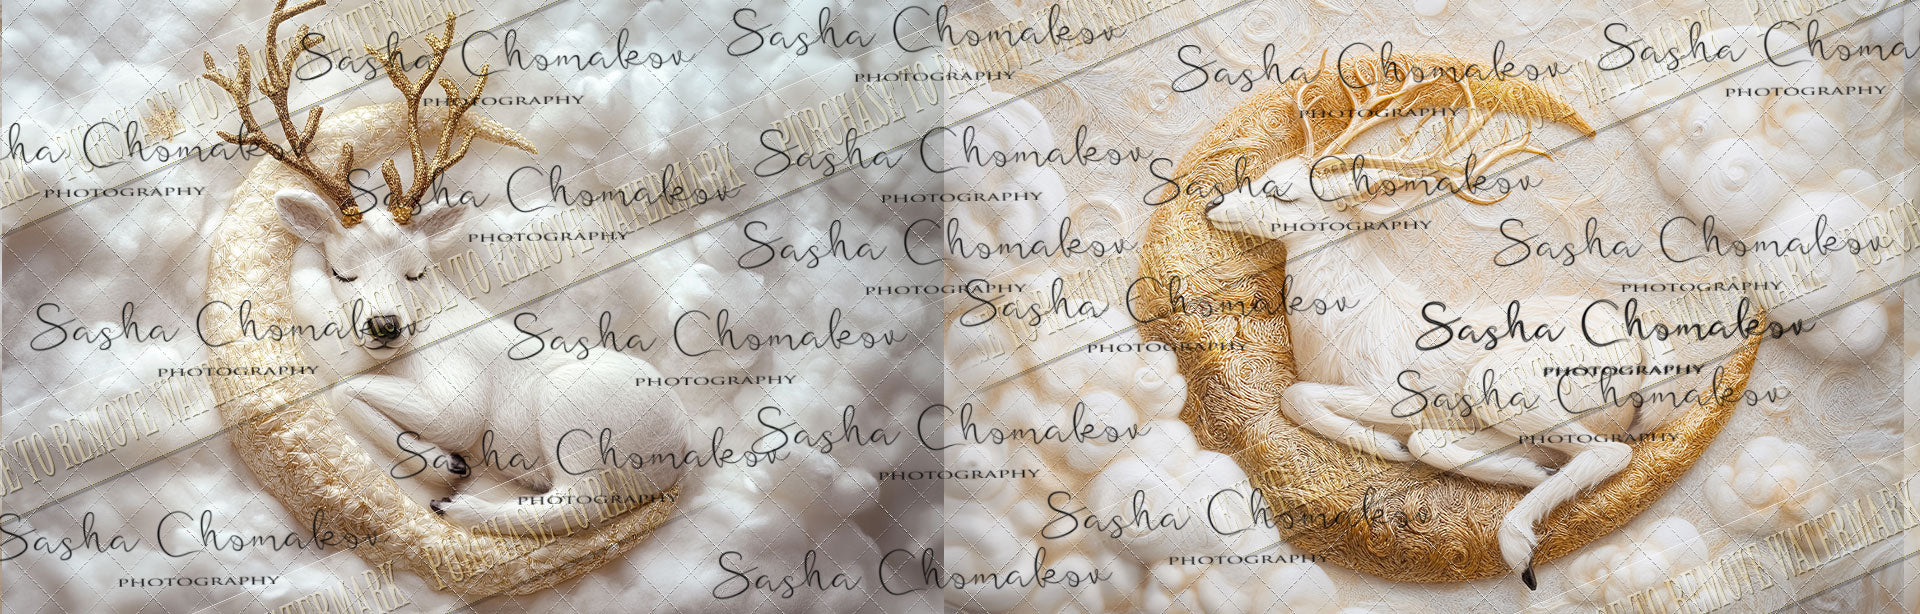 Sasha Chomakov
PHOTOGRAPHY
Sasha Chomakov
PHOTOGRAPHY
Sasha Chomakov
PHOTOGRAPHY
Sasha Choma
PHOTOGRAPHY
ha Chomakov
PHOTOGRAPHY
Sasha Chomakov
PHOTOGRAPHY
Sasha Chomakov
PHOTOGRAPHY
Sasha Chomakov
PHOTOGRAPHY
Sasha Chomakov
PHOTOGRAPHY
Sasha Chomakov
PHOTOGRAPHY
Sasha Chomakov
PHOTOGRAPHY
Sasha Chomakov
PHOTOGRAPHY
Sasha Chomakov
PHOTOGRAPHY
Sasha Chomakov
PHOTOGRAPHY
Sasha Chomakov
PHOTOGRAPHY
Sasha Chomakov
PHOTOGRAPHY
Sasha Chomakov
PHOTOGRAPHY
Sasha Chomakov
PHOTOGRAPHY
Sasha Chomakov
PHOTOGRAPHY
Sasha Chomakov
PURCHASE TO REMOVE WATERMARK
PURCHASE TO REMOVE WATERMARK
PURCHASE TO REMOVE WATERMARK